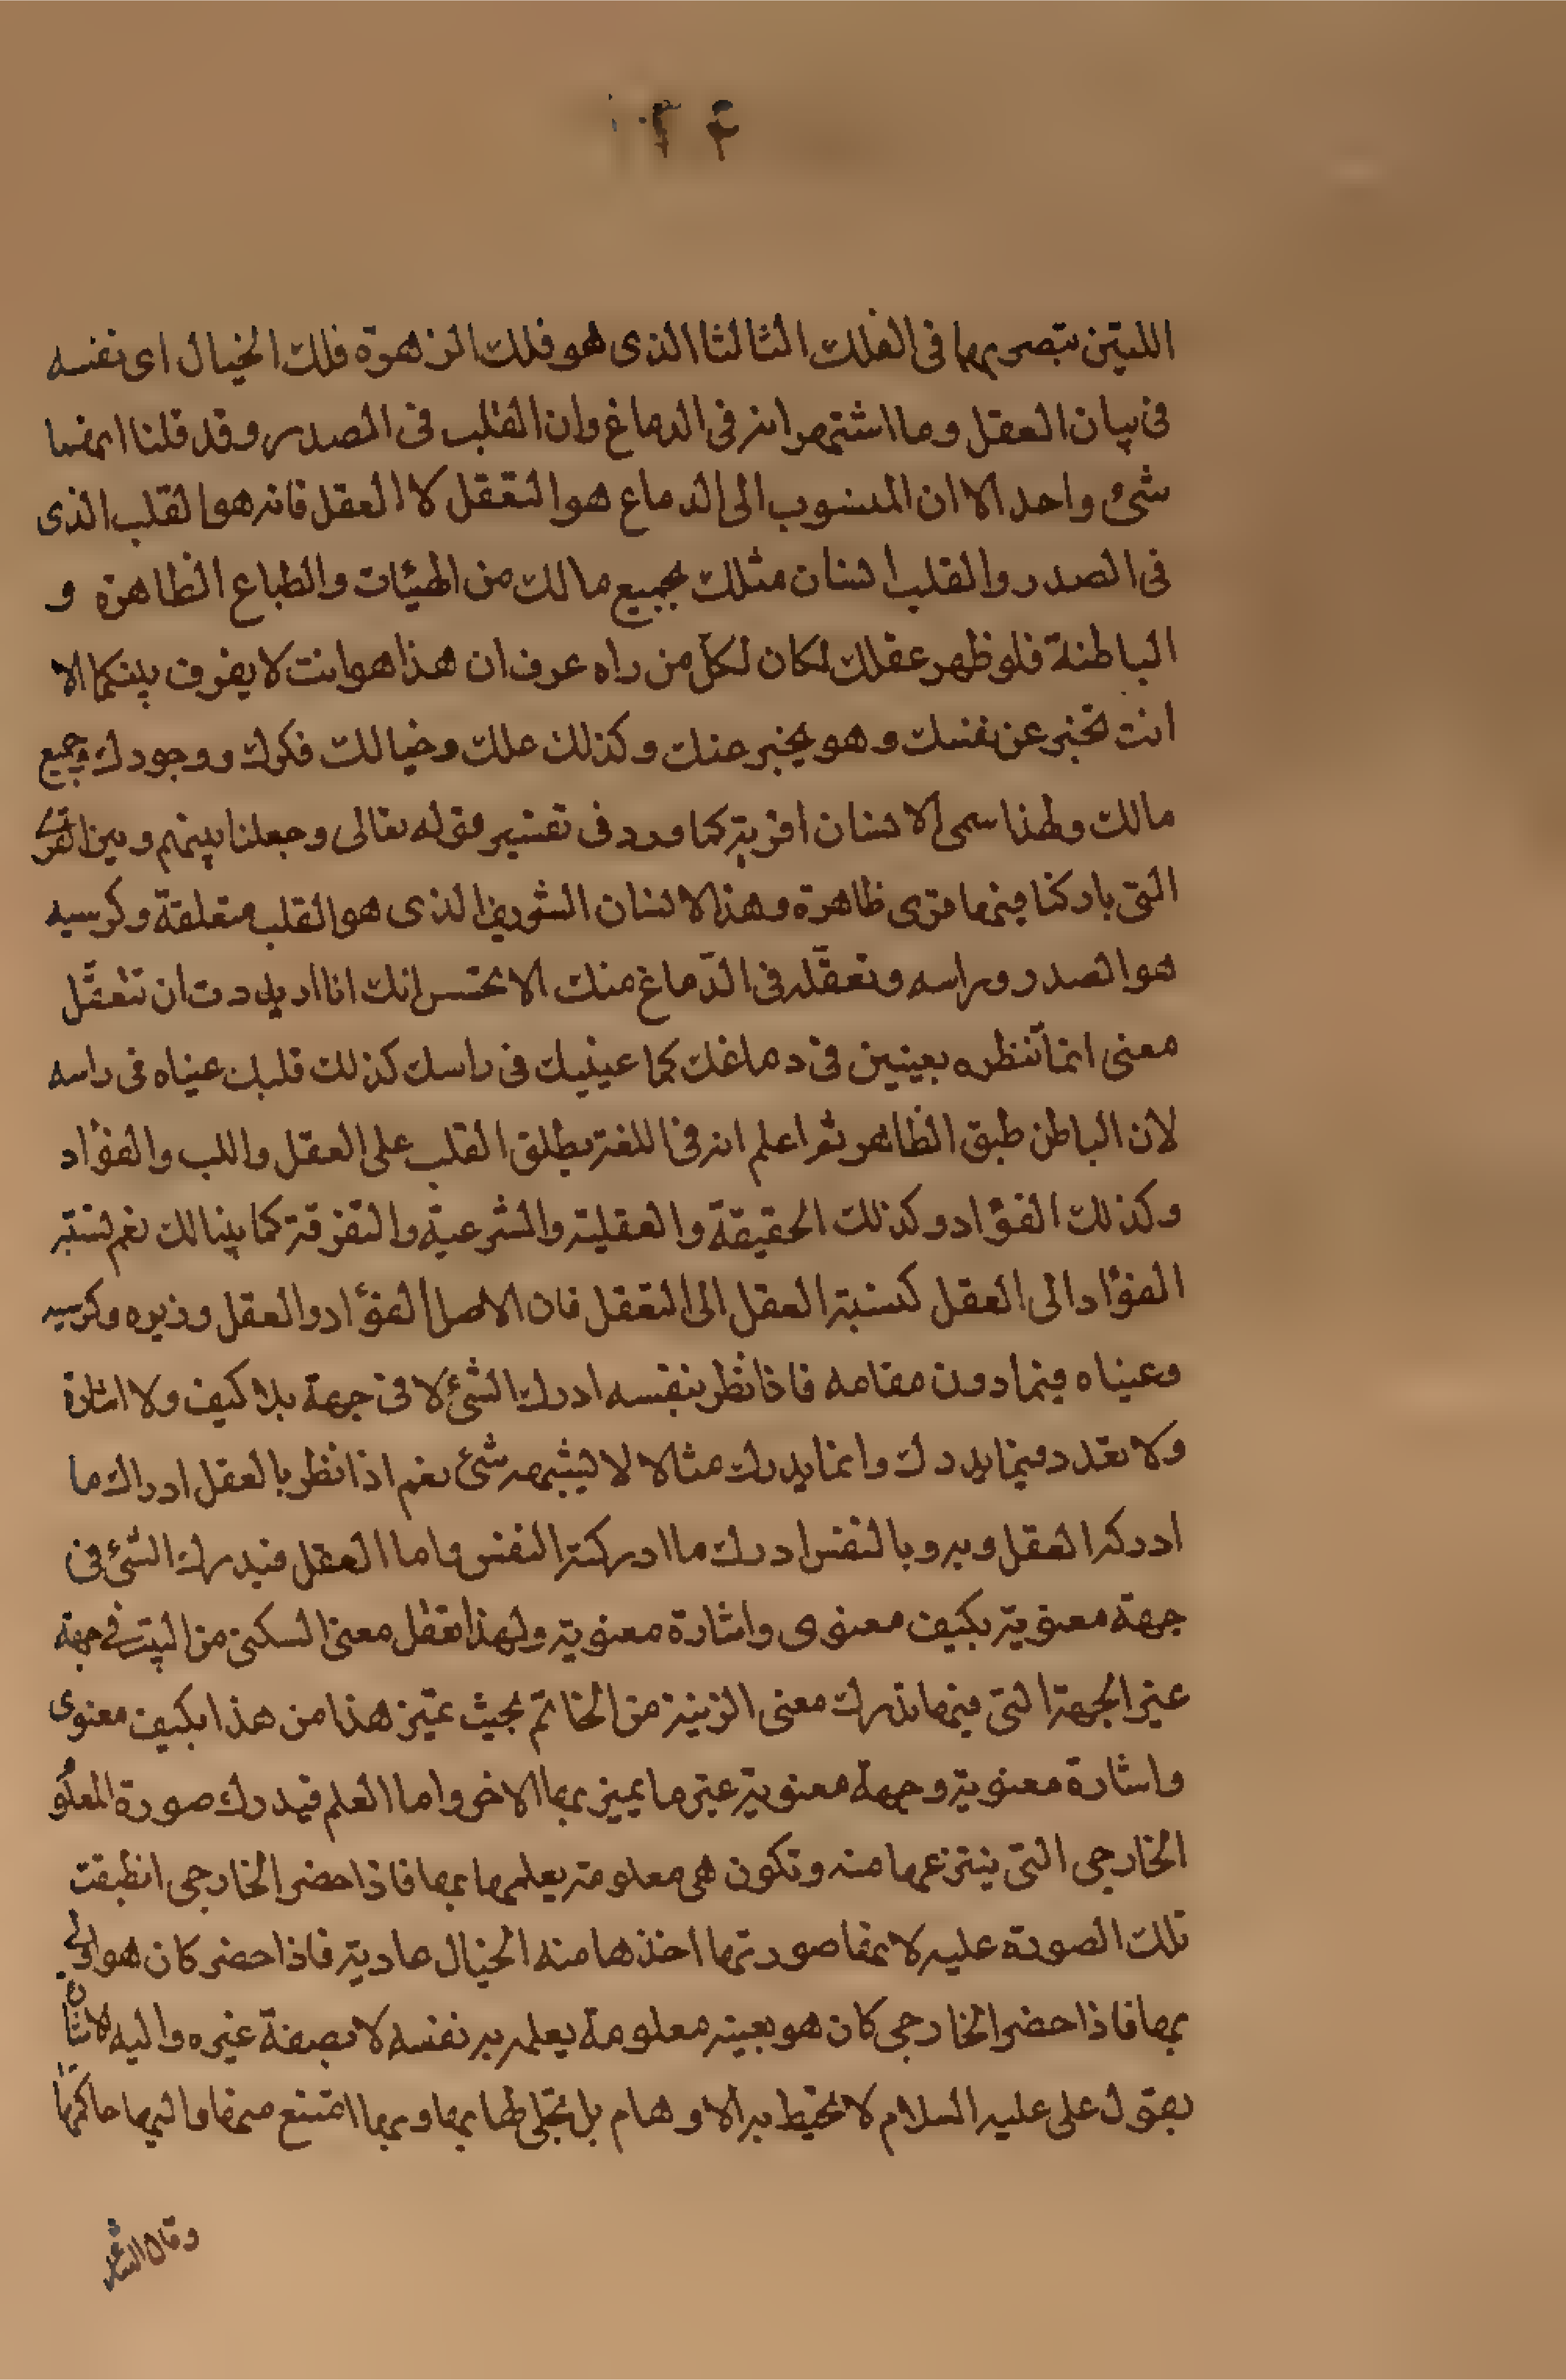 اللتين تبصر بهما فى الفلك الثالث الذى هو فلك الزهرة فلك الخيال اى نفسه
فى بيان العقل وما اشتهر انه فى الدماغ وان القلب فى الصدر وقد قلنا انهما
شئ واحد الا ان المنسوب الى الدماع هو التعقل لا العقل فانه هو القلب الذى
فى الصدر والقلب انسان مثلك بجميع مالك من الهيئات والطباع الظاهرة و
الباطنة فلو ظهر عقلك لكان لكل من راه عرف ان هذا هو انت لا يفرق بينكما الا
انت تخبر عن نفسك وهو يخبر عنك وكذلك علمك وخيالك فكرك ووجودك وجميع
مالك ولهذا سمى الانسان اقربة كما ورد فى تفسير قوله تعالى وجعلنا بينهم وبين القرى
التى باركنا فيها قرى ظاهرة وهذا الانسان الشريف الذى هو القلب متعلقة وكرسيه
هو الصدر وراسه وتعقّله فى الدّماغ منك الا تحس انك اذا اردت ان تتعقّل
معنى انما تنظره بعينين فى دماغك كما عينيك فى راسك كذلك قلبك عيناه فى راسه
لان الباطن طبق الظاهر ثم اعلم انه فى اللغة يطلق القلب على العقل واللب والفؤاد
وكذلك الفؤاد وكذلك الحقيقة والعقلية والشرعية والتفرقة كما بينا لك نعم نسبة
الفؤاد الى العقل كنسبة العقل الى التعقل فان الاصل الفؤاد والعقل وزيره وكرسيه
وعيناه فيما دون مقامه فاذا نظر بنفسه ادرك الشئ لا فى جهة بلا كيف ولا اشارة
ولا تعدد فيما يدرك وانما يدرك مثالا لا يشبهه شئ نعم اذا نظر بالعقل ادراك ما
ادركه العقل وبه وبالنفس ادرك ما ادركته النفس واما العقل فيدرك الشئ فى
جهة معنوية بكيف معنوى واشارة معنوية ولهذا تعقل معنى السكنى من البيت فى جهة
غير الجهة التى فيها تدرك معنى الزينة من الخاتم بحيث تميّز هذا من هذا بكيف معنوى
واشارة معنوية وجهة معنوية غير ما يميز بها الاخر واما العلم فيدرك صورة المعلو
الخارجى التى ينتزعها منه وتكون هى معلومة يعلمها بها فاذا حضر الخارجى انطبقت
تلك الصورة عليه لانها صورتها اخذها منه الخيال عارية فاذا حضر كان هو اولى
بها فاذا حضر الخارجى كان هو بعينه معلومة يعلمه به نفسه لا بصفة غيره واليه الاشارة
بقول على عليه السلام لا تحيط به الاوهام بل تجلى لها بها وبها امتنع منها واليها حاكمها
وقال الشاعر